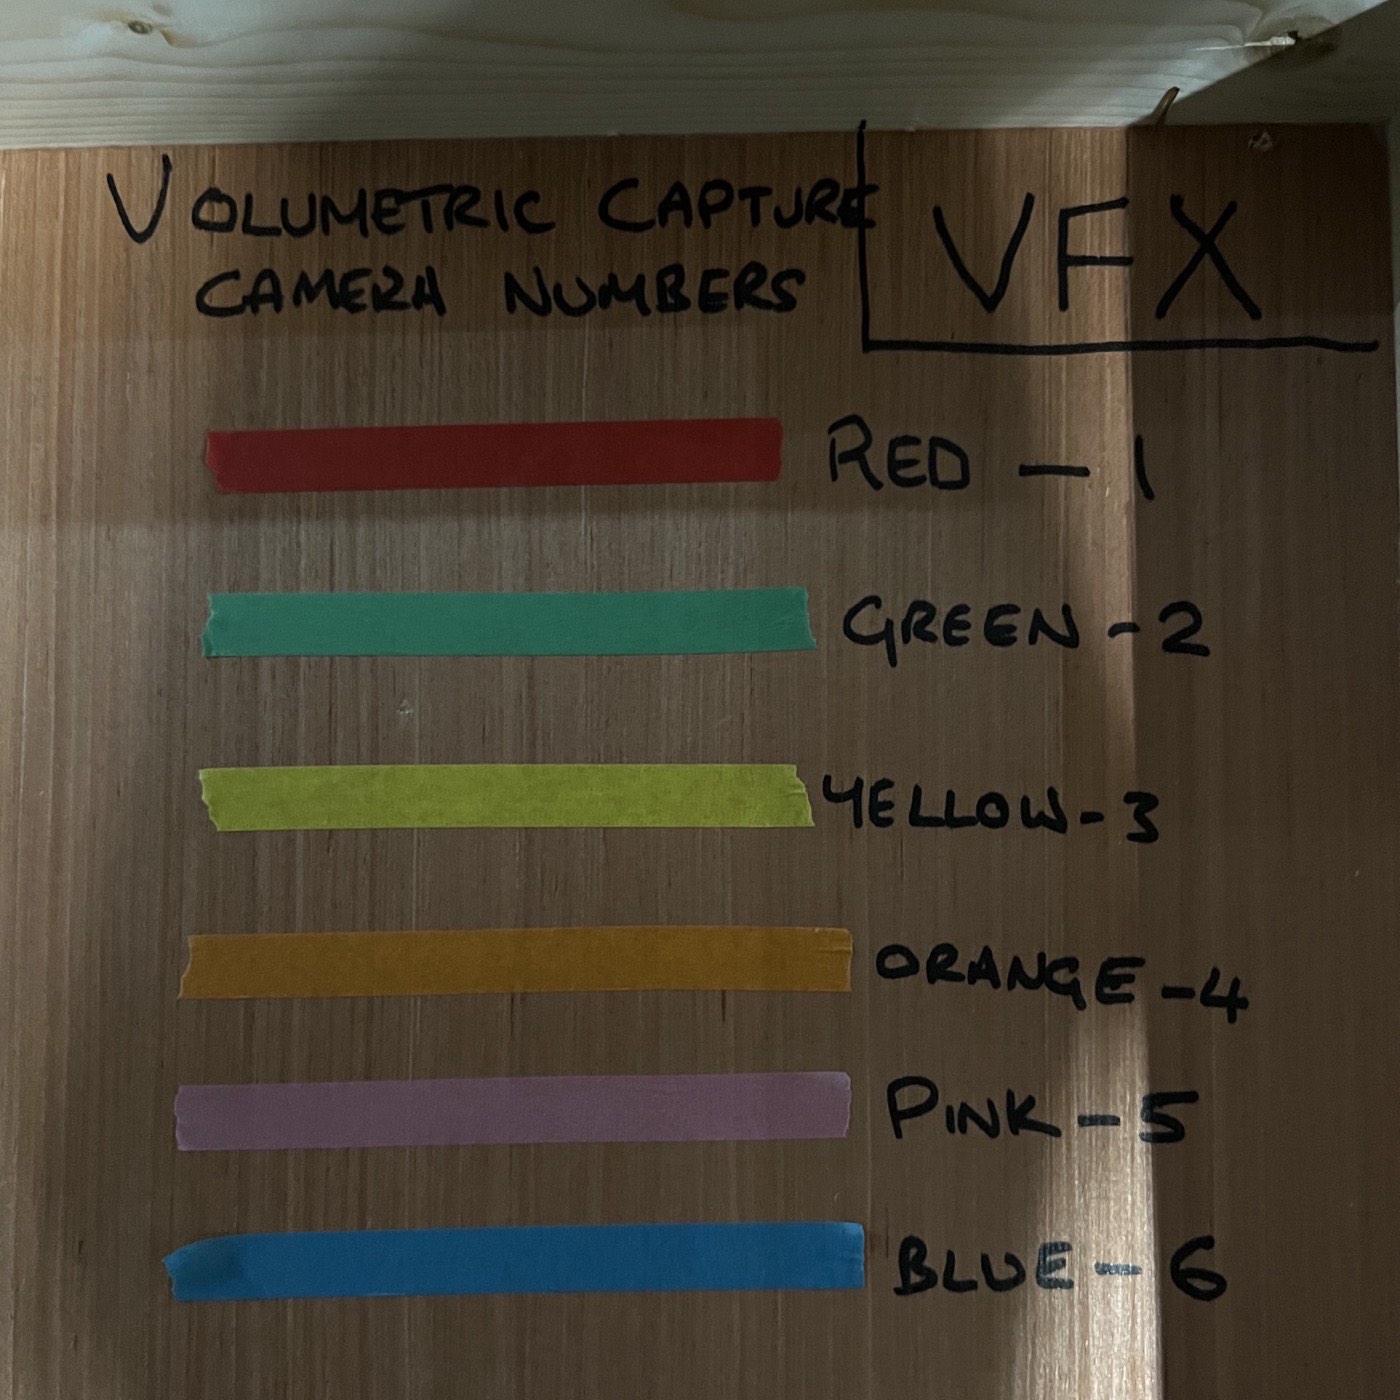 VOLUMETRIC CAPTURE
CAMERA NUMBERS
VFX
RED - 1
GREEN - 2
YELLOW - 3
ORANGE - 4
PINK - 5
BLUE - 6